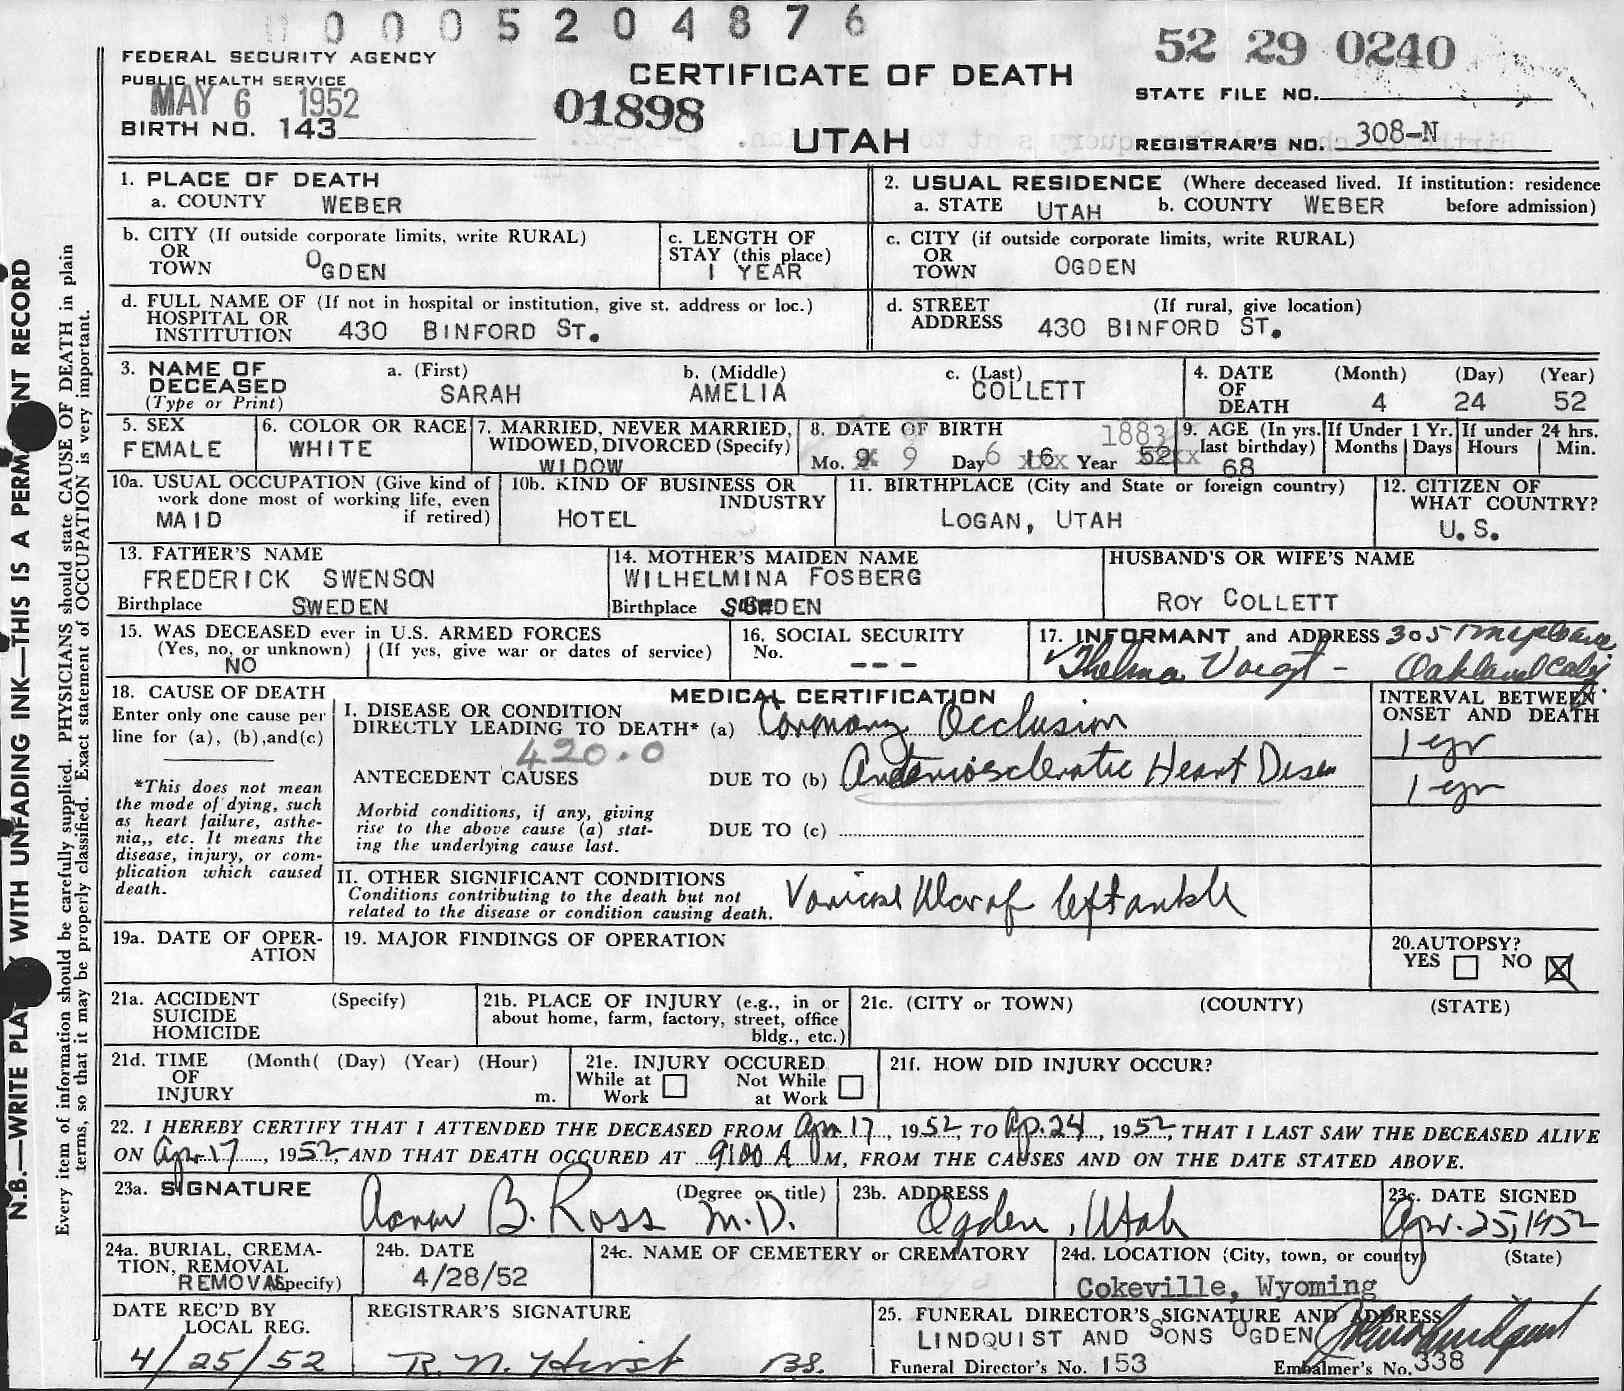 0 0 0 5 2 0 4 8 7 6
52 29 0240
FEDERAL SECURITY AGENCY
PUBLIC HEALTH SERVICE
MAY 6 1952
BIRTH NO. 143
CERTIFICATE OF DEATH
01898
UTAH
STATE FILE NO.
REGISTRAR'S NO. 308-N
1. PLACE OF DEATH
a. COUNTY WEBER
2. USUAL RESIDENCE (Where deceased lived. If institution: residence before admission)
a. STATE UTAH b. COUNTY WEBER
b. CITY (If outside corporate limits, write RURAL)
OR
TOWN OGDEN
c. LENGTH OF
STAY (this place)
1 YEAR
c. CITY (if outside corporate limits, write RURAL)
OR
TOWN OGDEN
d. FULL NAME OF (If not in hospital or institution, give st. address or loc.)
HOSPITAL OR
INSTITUTION 430 BINFORD ST.
d. STREET (If rural, give location)
ADDRESS 430 BINFORD ST.
3. NAME OF
DECEASED
(Type or Print)
a. (First) b. (Middle) c. (Last)
SARAH AMELIA COLLETT
4. DATE (Month) (Day) (Year)
OF
DEATH 4 24 52
5. SEX
FEMALE
6. COLOR OR RACE
WHITE
7. MARRIED, NEVER MARRIED,
WIDOWED, DIVORCED (Specify)
WIDOW
8. DATE OF BIRTH 1883
Mo. 9 Day 6 16 Year 52
9. AGE (In yrs.
last birthday)
68
If Under 1 Yr.
Months Days
If under 24 hrs.
Hours Min.
10a. USUAL OCCUPATION (Give kind of
work done most of working life, even
if retired)
MAID
10b. KIND OF BUSINESS OR
INDUSTRY
HOTEL
11. BIRTHPLACE (City and State or foreign country)
LOGAN, UTAH
12. CITIZEN OF
WHAT COUNTRY?
U.S.
13. FATHER'S NAME
FREDERICK SWENSON
Birthplace SWEDEN
14. MOTHER'S MAIDEN NAME
WILHELMINA FOSBERG
Birthplace SWEDEN
HUSBAND'S OR WIFE'S NAME
ROY COLLETT
15. WAS DECEASED ever in U.S. ARMED FORCES
(Yes, no, or unknown) (If yes, give war or dates of service)
NO
16. SOCIAL SECURITY
No. ---
17. INFORMANT and ADDRESS 305
Thelma Voigt - Oakland Calif
18. CAUSE OF DEATH
Enter only one cause per
line for (a), (b), and (c)
*This does not mean
the mode of dying, such
as heart failure, asthe-
nia,, etc. It means the
disease, injury, or com-
plication which caused
death.
MEDICAL CERTIFICATION
I. DISEASE OR CONDITION
DIRECTLY LEADING TO DEATH* (a) Coronary Occlusion
420.0
ANTECEDENT CAUSES DUE TO (b) Arteriosclerotic Heart Disea
Morbid conditions, if any, giving
rise to the above cause (a) stat-
ing the underlying cause last.
DUE TO (c)
INTERVAL BETWEEN
ONSET AND DEATH
1 yr
1 yr
II. OTHER SIGNIFICANT CONDITIONS
Conditions contributing to the death but not
related to the disease or condition causing death.
Varicose Ulcer of left ankle
19a. DATE OF OPER-
ATION
19. MAJOR FINDINGS OF OPERATION
20. AUTOPSY?
YES NO X
21a. ACCIDENT (Specify)
SUICIDE
HOMICIDE
21b. PLACE OF INJURY (e.g., in or
about home, farm, factory, street, office
bldg., etc.)
21c. (CITY or TOWN) (COUNTY) (STATE)
21d. TIME (Month( (Day) (Year) (Hour)
OF
INJURY m.
21e. INJURY OCCURED
While at Work Not While at Work
21f. HOW DID INJURY OCCUR?
22. I HEREBY CERTIFY THAT I ATTENDED THE DECEASED FROM Apr. 17, 1952, TO Ap. 24, 1952, THAT I LAST SAW THE DECEASED ALIVE
ON Apr. 17, 1952, AND THAT DEATH OCCURED AT 9:00 A M, FROM THE CAUSES AND ON THE DATE STATED ABOVE.
23a. SIGNATURE (Degree or title)
B. Ross M.D.
23b. ADDRESS
Ogden, Utah
23c. DATE SIGNED
Apr. 25, 1952
24a. BURIAL, CREMA-
TION, REMOVAL
REMOVAL (Specify)
24b. DATE
4/28/52
24c. NAME OF CEMETERY or CREMATORY
24d. LOCATION (City, town, or county) (State)
Cokeville, Wyoming
DATE REC'D BY
LOCAL REG.
4/25/52
REGISTRAR'S SIGNATURE
R. N. Hirst B.S.
25. FUNERAL DIRECTOR'S SIGNATURE AND ADDRESS
LINDQUIST AND SONS OGDEN
Funeral Director's No. 153 Embalmer's No. 338
Every item of information should be carefully supplied. PHYSICIANS should state CAUSE OF DEATH in plain
terms, so that it may be properly classified. Exact statement of OCCUPATION is very important.
N.B.—WRITE WITH UNFADING INK—THIS IS A RECORD